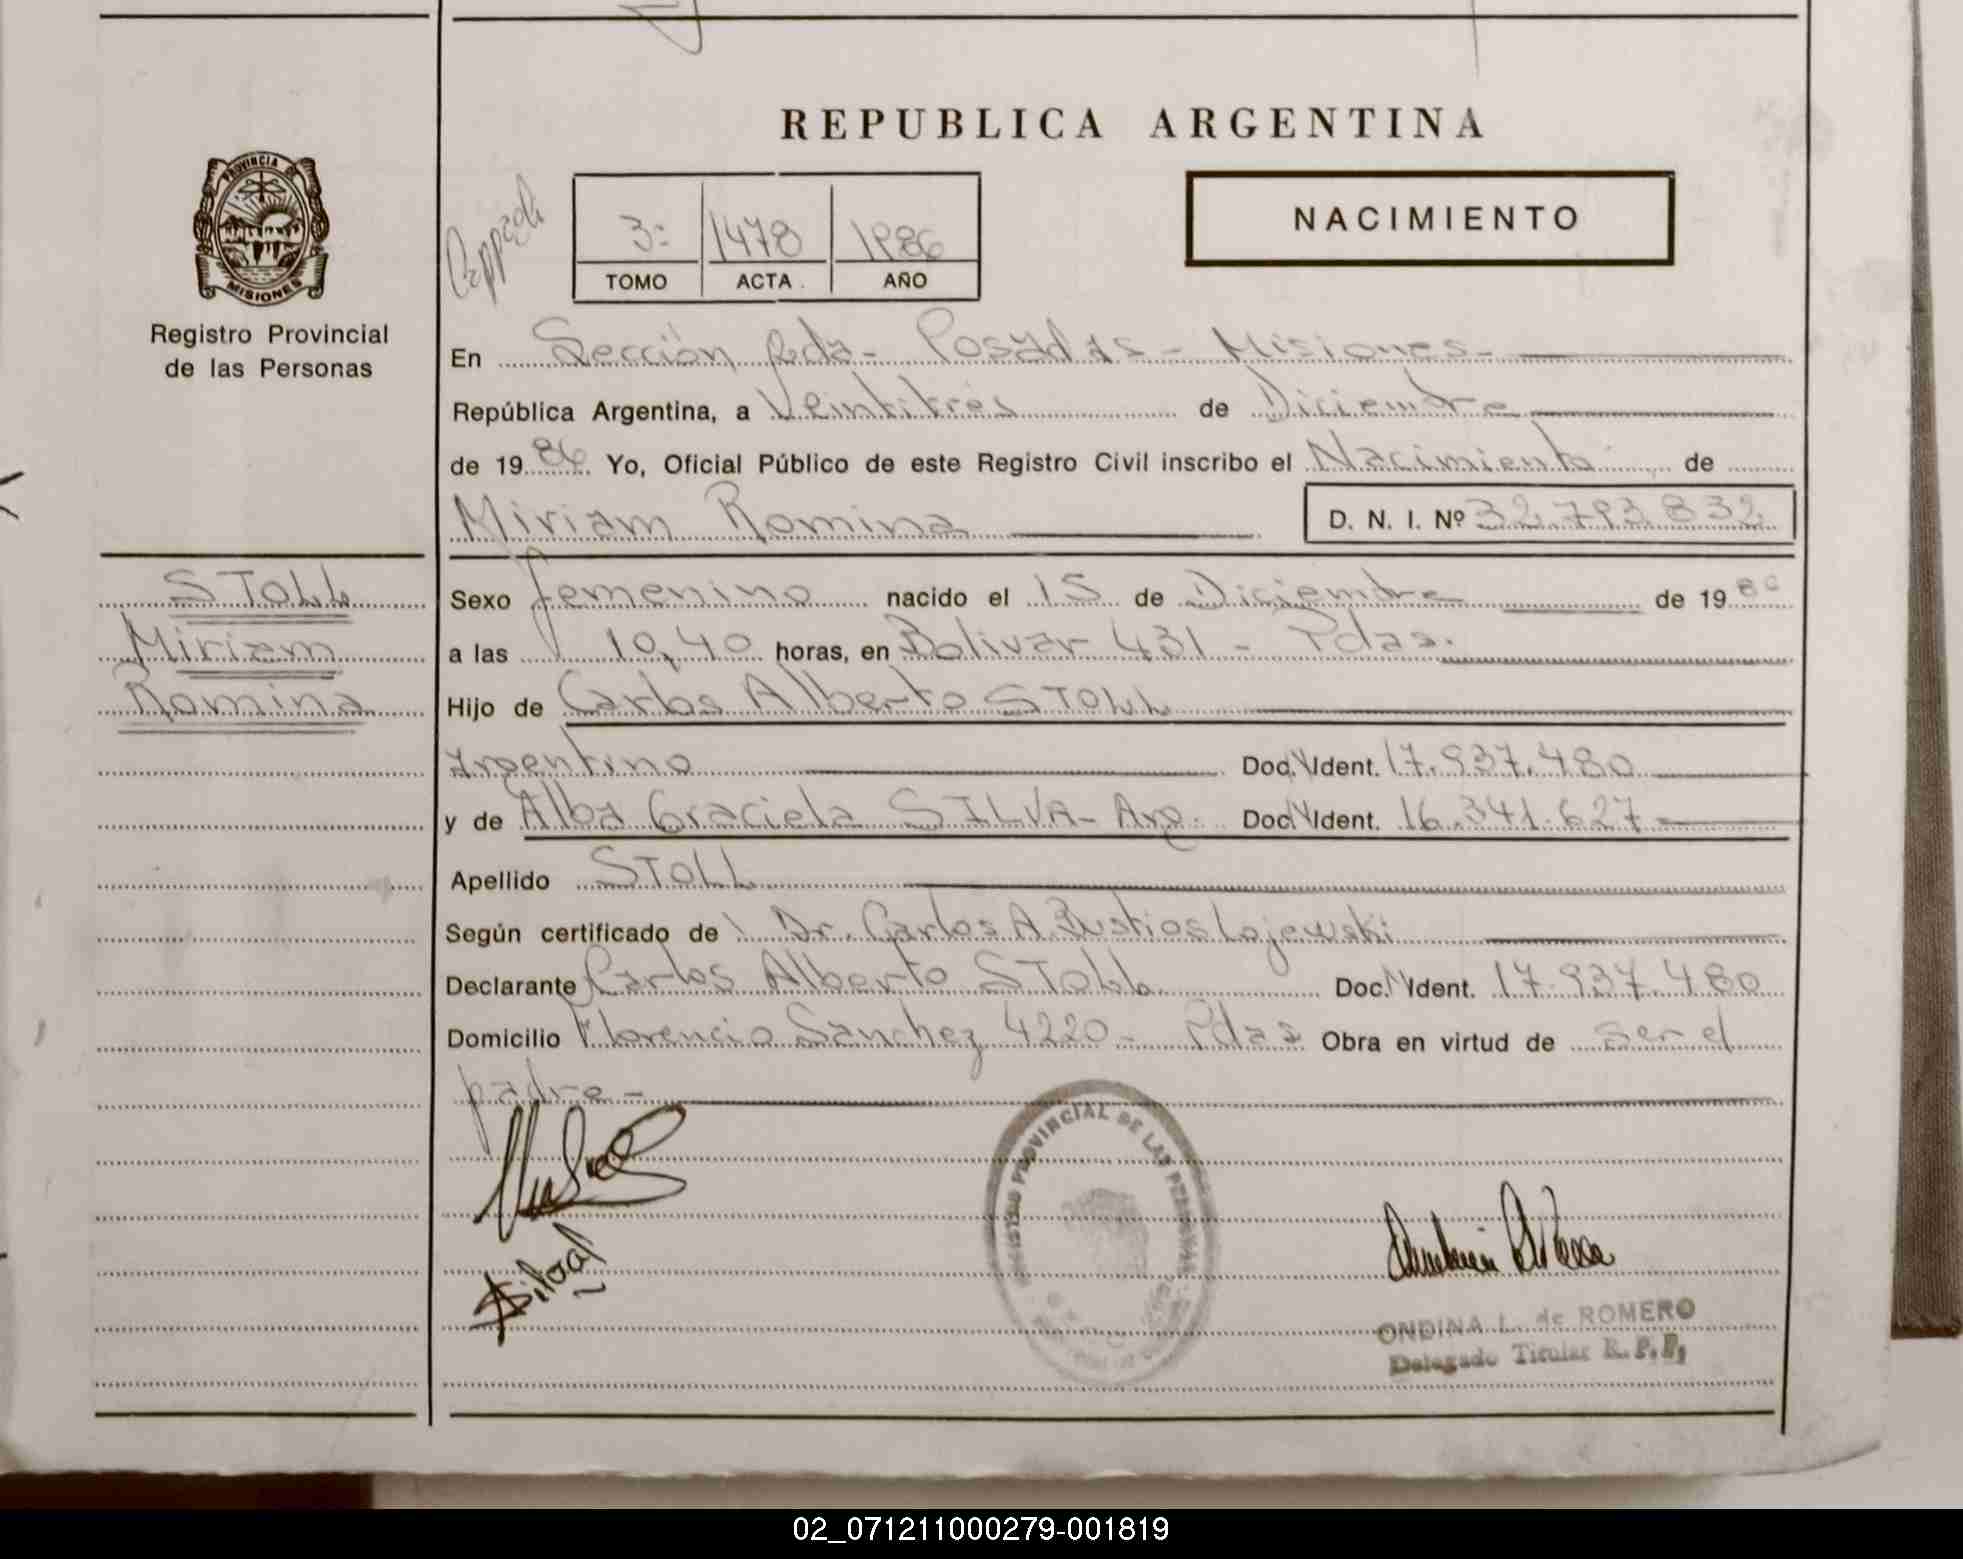 REPUBLICA ARGENTINA
NACIMIENTO
PROVINCIA DE
MISIONES
Registro Provincial
de las Personas
3º 1478 1986
TOMO ACTA AÑO
En Sección 2da- Posadas - Misiones-
República Argentina, a Veintitrés de Diciembre
de 1986 Yo, Oficial Público de este Registro Civil inscribo el Nacimiento de
Miriam Romina D. N. I. Nº 32.793.832
STOLL
Miriam
Romina
Sexo femenino nacido el 15 de Diciembre de 1986
a las 10,40 horas, en Bolivar 431 - Pdas.
Hijo de Carlos Alberto STOLL
Argentino Doc. Ident. 17.937.480
y de Alba Graciela SILVA- Arg. Doc. Ident. 16.341.627-
Apellido STOLL
Según certificado de Dr. Carlos A. Bustios Lojewski
Declarante Carlos Alberto STOLL Doc. Ident. 17.937.480
Domicilio Florencio Sanchez 4220- Pdas Obra en virtud de ser el
padre-
REGISTRO PROVINCIAL DE LAS PERSONAS
ASilva
ONDINA L. de ROMERO
Delegado Titular R. P. P.
02_071211000279-001819